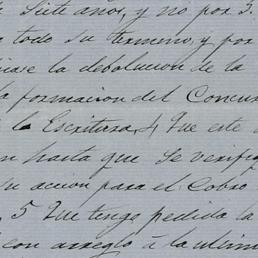 siete años, y no por 3.
todo su termino, y por
la devolucion de la
formacion del Concur
la Escritura, 4 Que este
hasta que se verifi
accion para el Cobro
5 Que tenga pedida la
con arreglo á la ultim